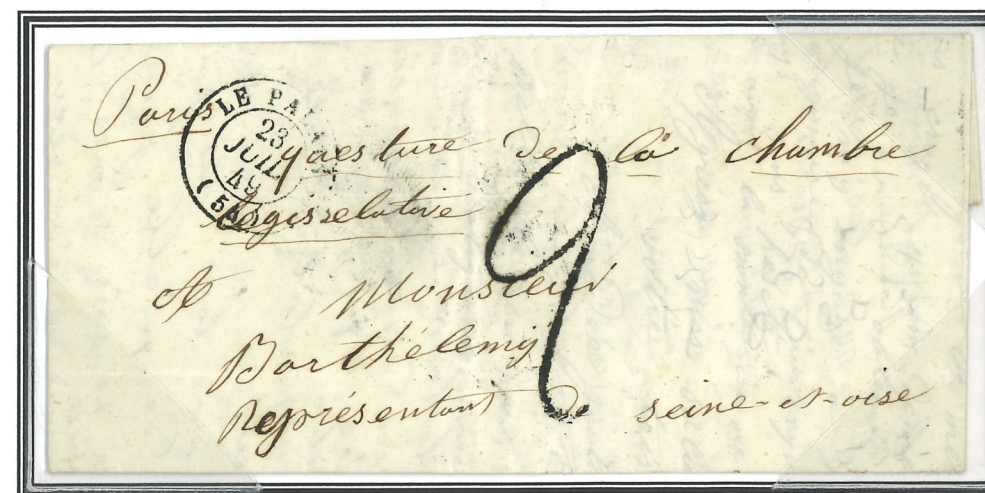 Paris
LE PA
23
JUIL
49
questure de la chambre
Legisselative
A Monsieur
Barthélemy
Représentant de seine-et-oise
2